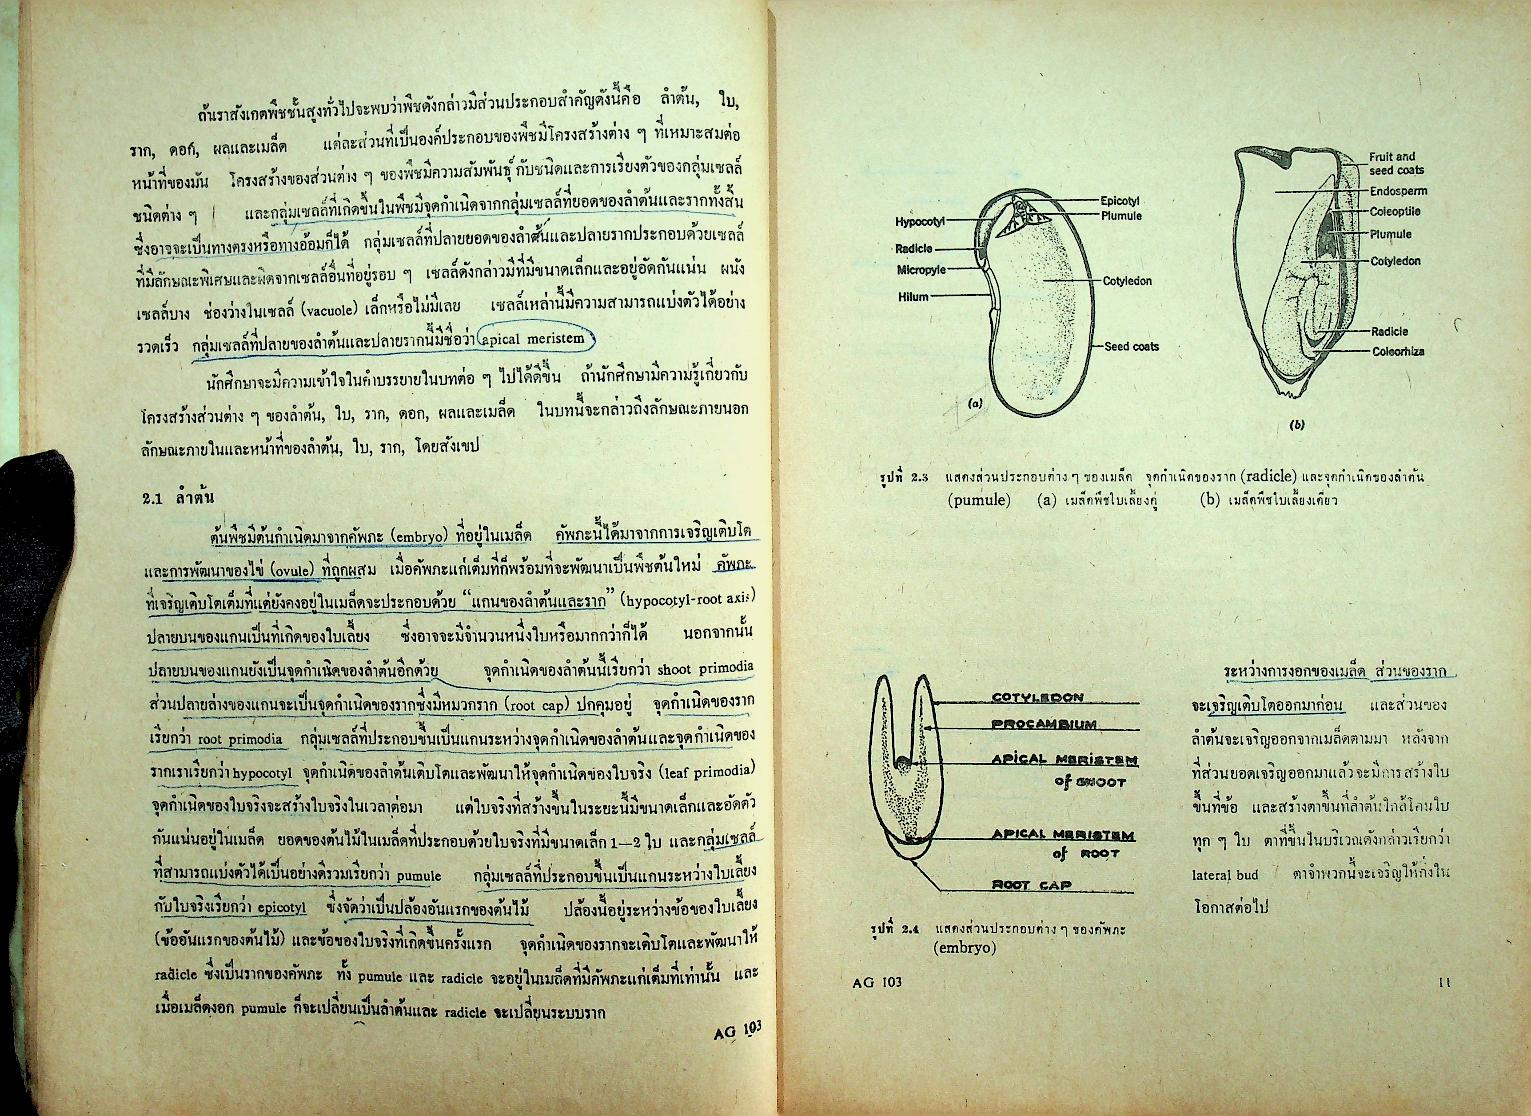 ถ้นราสังเกตพืชชั้นสูงทั่วไปจะพบว่าพืชดังกล่าวมีส่วนประกอบสำคัญดังนี้คือ ลำต้น, ใบ,
ราก, ดอก, ผลและเมล็ด แต่ละส่วนที่เป็นองค์ประกอบของพืชมีโครงสร้างต่าง ๆ ที่เหมาะสมต่อ
หน้าที่ของมัน โครงสร้างของส่วนต่าง ๆ ของพืชมีความสัมพันธุ์กับชนิดและการเรียงตัวของกลุ่มเซลล์
ชนิดต่าง ๆ และกลุ่มเซลล์ที่เกิดขึ้นในพืชมีจุดกำเนิดจากกลุ่มเซลล์ที่ยอดของลำต้นและรากทั้งสิ้น
ซึ่งอาจจะเป็นทางตรงหรือทางอ้อมก็ได้ กลุ่มเซลล์ที่ปลายยอดของลำต้นและปลายรากประกอบด้วยเซลล์
ที่มีลักษณะพิเศษและผิดจากเซลล์อื่นที่อยู่รอบ ๆ เซลล์ดังกล่าวมีที่มีขนาดเล็กและอยู่อัดกันแน่น ผนัง
เซลล์บาง ช่องว่างในเซลล์ (vacuole) เล็กหรือไม่มีเลย เซลล์เหล่านี้มีความสามารถแบ่งตัวได้อย่าง
รวดเร็ว กลุ่มเซลล์ที่ปลายของลำต้นและปลายรากนี้มีชื่อว่า apical meristem
นักศึกษาจะมีความเข้าใจในคำบรรยายในบทต่อ ๆ ไปได้ดีขึ้น ถ้านักศึกษามีความรู้เกี่ยวกับ
โครงสร้างส่วนต่าง ๆ ของลำต้น, ใบ, ราก, ดอก, ผลและเมล็ด ในบทนี้จะกล่าวถึงลักษณะภายนอก
ลักษณะภายในและหน้าที่ของลำต้น, ใบ, ราก, โดยสังเขป
2.1 ลำต้น
ต้นพืชมีต้นกำเนิดมาจากคัพภะ (embryo) ที่อยู่ในเมล็ด คัพภะนี้ได้มาจากการเจริญเติบโต
และการพัฒนาของไข่ (ovule) ที่ถูกผสม เมื่อคัพภะแก่เต็มที่ก็พร้อมที่จะพัฒนาเป็นพืชต้นใหม่ คัพภะ
ที่เจริญเติบโตเต็มที่แต่ยังคงอยู่ในเมล็ดจะประกอบด้วย “แกนของลำต้นและราก” (hypocotyl-root axis)
ปลายบนของแกนเป็นที่เกิดของใบเลี้ยง ซึ่งอาจจะมีจำนวนหนึ่งใบหรือมากกว่าก็ได้ นอกจากนั้น
ปลายบนของแกนยังเป็นจุดกำเนิดของลำต้นอีกด้วย จุดกำเนิดของลำต้นนี้เรียกว่า shoot primodia
ส่วนปลายล่างของแกนจะเป็นจุดกำเนิดของรากซึ่งมีหมวกราก (root cap) ปกคุมอยู่ จุดกำเนิดของราก
เรียกว่า root primodia กลุ่มเซลล์ที่ประกอบขึ้นเป็นแกนระหว่างจุดกำเนิดของลำต้นและจุดกำเนิดของ
รากเราเรียกว่า hypocotyl จุดกำเนิดของลำต้นเติบโตและพัฒนาให้จุดกำเนิดของใบจริง (leaf primodia)
จุดกำเนิดของใบจริงจะสร้างใบจริงในเวลาต่อมา แต่ใบจริงที่สร้างขึ้นในระยะนี้มีขนาดเล็กและอัดตัว
กันแน่นอยู่ในเมล็ด ยอดของต้นไม้ในเมล็ดที่ประกอบด้วยใบจริงที่มีขนาดเล็ก 1—2 ใบ และกลุ่มเซลล์
ที่สามารถแบ่งตัวได้เป็นอย่างดีรวมเรียกว่า pumule กลุ่มเซลล์ที่ประกอบขึ้นเป็นแกนระหว่างใบเลี้ยง
กับใบจริงเรียกว่า epicotyl ซึ่งจัดว่าเป็นปล้องอันแรกของต้นไม้ ปล้องนี้อยู่ระหว่างข้อของใบเลี้ยง
(ข้ออันแรกของต้นไม้) และข้อของใบจริงที่เกิดขึ้นครั้งแรก จุดกำเนิดของรากจะเติบโตและพัฒนาให้
radicle ซึ่งเป็นรากของคัพภะ ทั้ง pumule และ radicle จะอยู่ในเมล็ดที่มีคัพภะแก่เต็มที่เท่านั้น และ
เมื่อเมล็ดงอก pumule ก็จะเปลี่ยนเป็นลำต้นและ radicle จะเปลี่ยนระบบราก
AG 103
Hypocotyl
Radicle
Micropyle
Hilum
Epicotyl
Plumule
Cotyledon
Seed coats
(a)
Fruit and
seed coats
Endosperm
Coleoptile
Plumule
Cotyledon
Radicle
Coleorhiza
(b)
รูปที่ 2.3 แสดงส่วนประกอบต่าง ๆ ของเมล็ด จุดกำเนิดของราก (radicle) และจุดกำเนิดของลำต้น
(pumule) (a) เมล็ดพืชใบเลี้ยงคู่ (b) เมล็ดพืชใบเลี้ยงเดี่ยว
COTYLEDON
PROCAMBIUM
APICAL MERISTEM
of SHOOT
APICAL MERISTEM
of ROOT
ROOT CAP
รูปที่ 2.4 แสดงส่วนประกอบต่าง ๆ ของคัพภะ
(embryo)
ระหว่างการงอกของเมล็ด ส่วนของราก
จะเจริญเติบโตออกมาก่อน และส่วนของ
ลำต้นจะเจริญออกจากเมล็ดตามมา หลังจาก
ที่ส่วนยอดเจริญออกมาแล้วจะมีการสร้างใบ
ขึ้นที่ข้อ และสร้างตาขึ้นที่ลำต้นใกล้โคนใบ
ทุก ๆ ใบ ตาที่ขึ้นในบริเวณดังกล่าวเรียกว่า
lateral bud ตาจำพวกนี้จะเจริญให้กิ่งใน
โอกาสต่อไป
AG 103
11